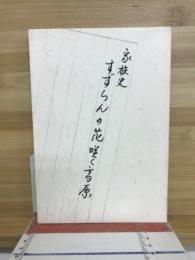 家族史
すずらんの花咲く高原